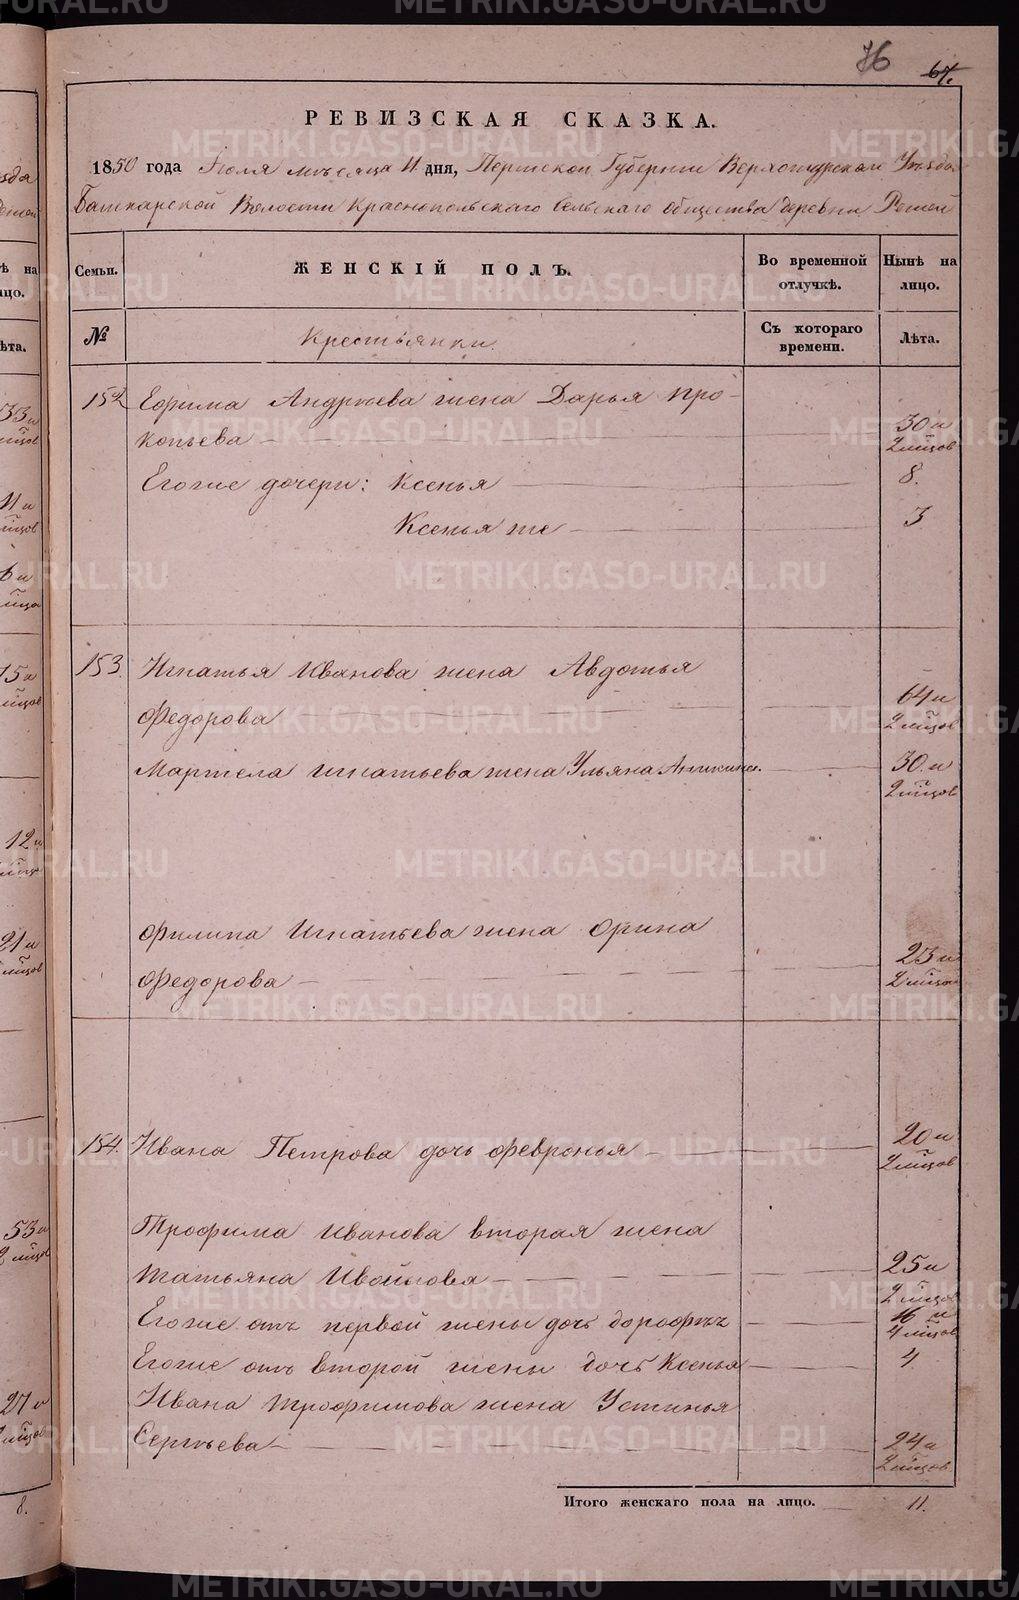 76 67.
РЕВИЗСКАЯ СКАЗКА.
1850 года Іюля мѣсяца 11 дня, Пермской Губерніи Верхотурскаго Уѣзда
Башкарской Волости Краснопольскаго Сельскаго общества деревни
Семьи. ЖЕНСКІЙ ПОЛЪ. Во временной отлучкѣ. Нынѣ на лицо.
№ Крестьянки. Съ котораго времени. Лѣта.
152 Ефима Андреева жена Дарья Про-
копьева 30 и
2 мѣсцов
Егоже дочери: Ксенья 8.
Ксенья же 3
153. Игнатья Иванова жена Авдотья
Федорова 64 и
2 мѣсцов
Игнатьева жена Ульяна 30 и
2 мѣсцов
Филипа Игнатьева жена Орина
Федорова 23 и
2 мѣсцов
154. Ивана Петрова дочь Февронья 20 и
2 мѣсцов
Трофима Иванова вторая жена
Татьяна 25 и
2 мѣсцов
Егоже отъ первой жены дочь 16 и
4 мѣсцов
Егоже отъ второй жены дочь Ксенья 4
Ивана Трофимова жена Устинья
Сергѣева 24 и
2 мѣсцов
Итого женскаго пола на лицо. 11.
METRIKI.GASO-URAL.RU